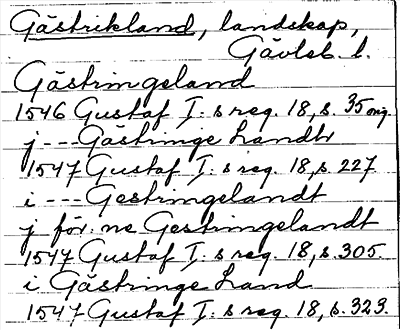 Gästrikland, landskap,
Gävleb. l.
Gästringeland
1546 Gustaf I:s reg. 18, s. 35 orig.
j --- Gästringe Landh
1547 Gustaf I:s reg. 18, s. 227
i --- Gestringelandt
j för:ne Gestringelandt
1547 Gustaf I:s reg. 18, s. 305.
i Gästringe Land
1547 Gustaf I:s reg. 18, s. 323.